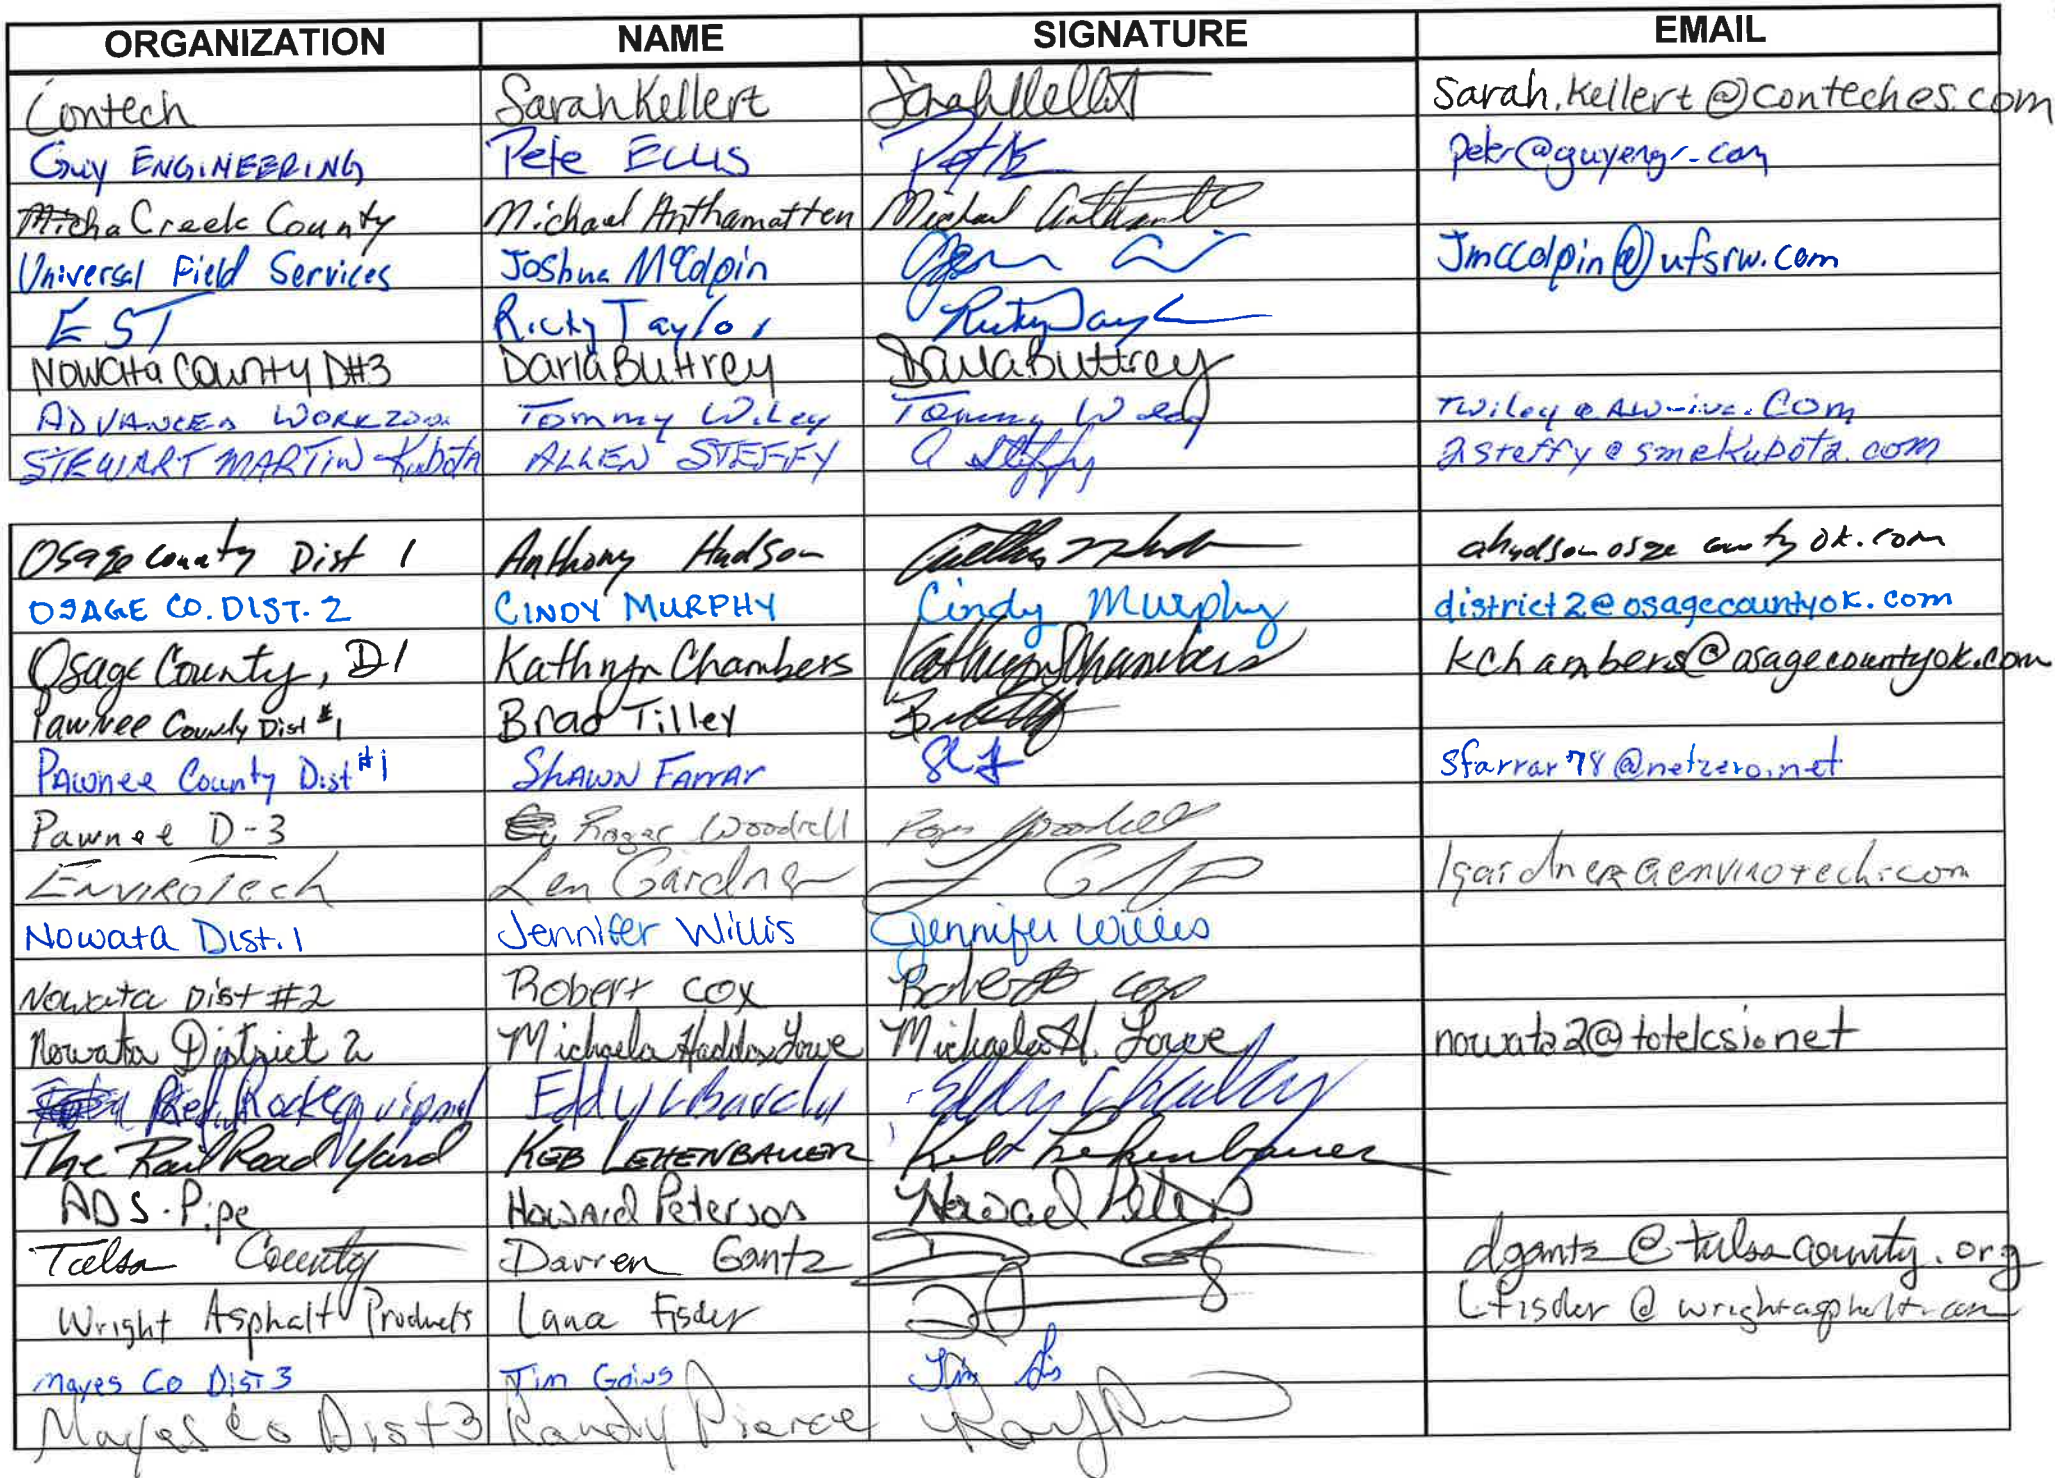 ORGANIZATION NAME SIGNATURE EMAIL
Contech Sarah Kellert Sarah Kellert Sarah.Kellert@conteches.com
Guy ENGINEERING Pete ELLIS peter@guyengr.com
Creek County Michael Anthamatten Michael
Universal Field Services Joshua McColpin Jmccolpin@ufsrw.com
EST Ricky Taylor Ricky Tayl
Nowata County D#3 Darla Buttrey Darla Buttrey
ADVANCED WORKZONE Tommy Wiley Tommy Wiley Twiley@AW-inc.Com
STEWART MARTIN Kubota ALLEN STEFFY A Steffy asteffy@smekubota.com
Osage County Dist 1 Anthony Hudson
OSAGE CO. DIST. 2 CINDY MURPHY Cindy Murphy district2@osagecountyok.com
Osage County, D1 Kathryn Chambers Kathryn Chambers kchambers@osagecountyok.com
Pawnee County Dist #1 Brad Tilley
Pawnee County Dist #1 SHAWN FARRAR sfarrar78@netzero.net
Pawnee D-3 Roger Woodrell
ENVIROTech Len Gardner lgardner@envirotech.com
Nowata Dist. 1 Jennifer Willis Jennifer Willis
Nowata Dist #2 Robert Cox Robert Cox
Nowata District 2 Michaela Haddox Lowe Michaela H. Lowe nowata2@totelcsi.net
Eddy
The Rail Road Yard KEB LEHENBAUER Keb Lehenbauer
ADS-Pipe Howard Peterson Howard
Tulsa County Darren Gantz dgantz@tulsacounty.org
Wright Asphalt Products Lana
Mayes Co Dist 3 Tim Goins Tim
Mayes Co Dist 3 Randy Pierce